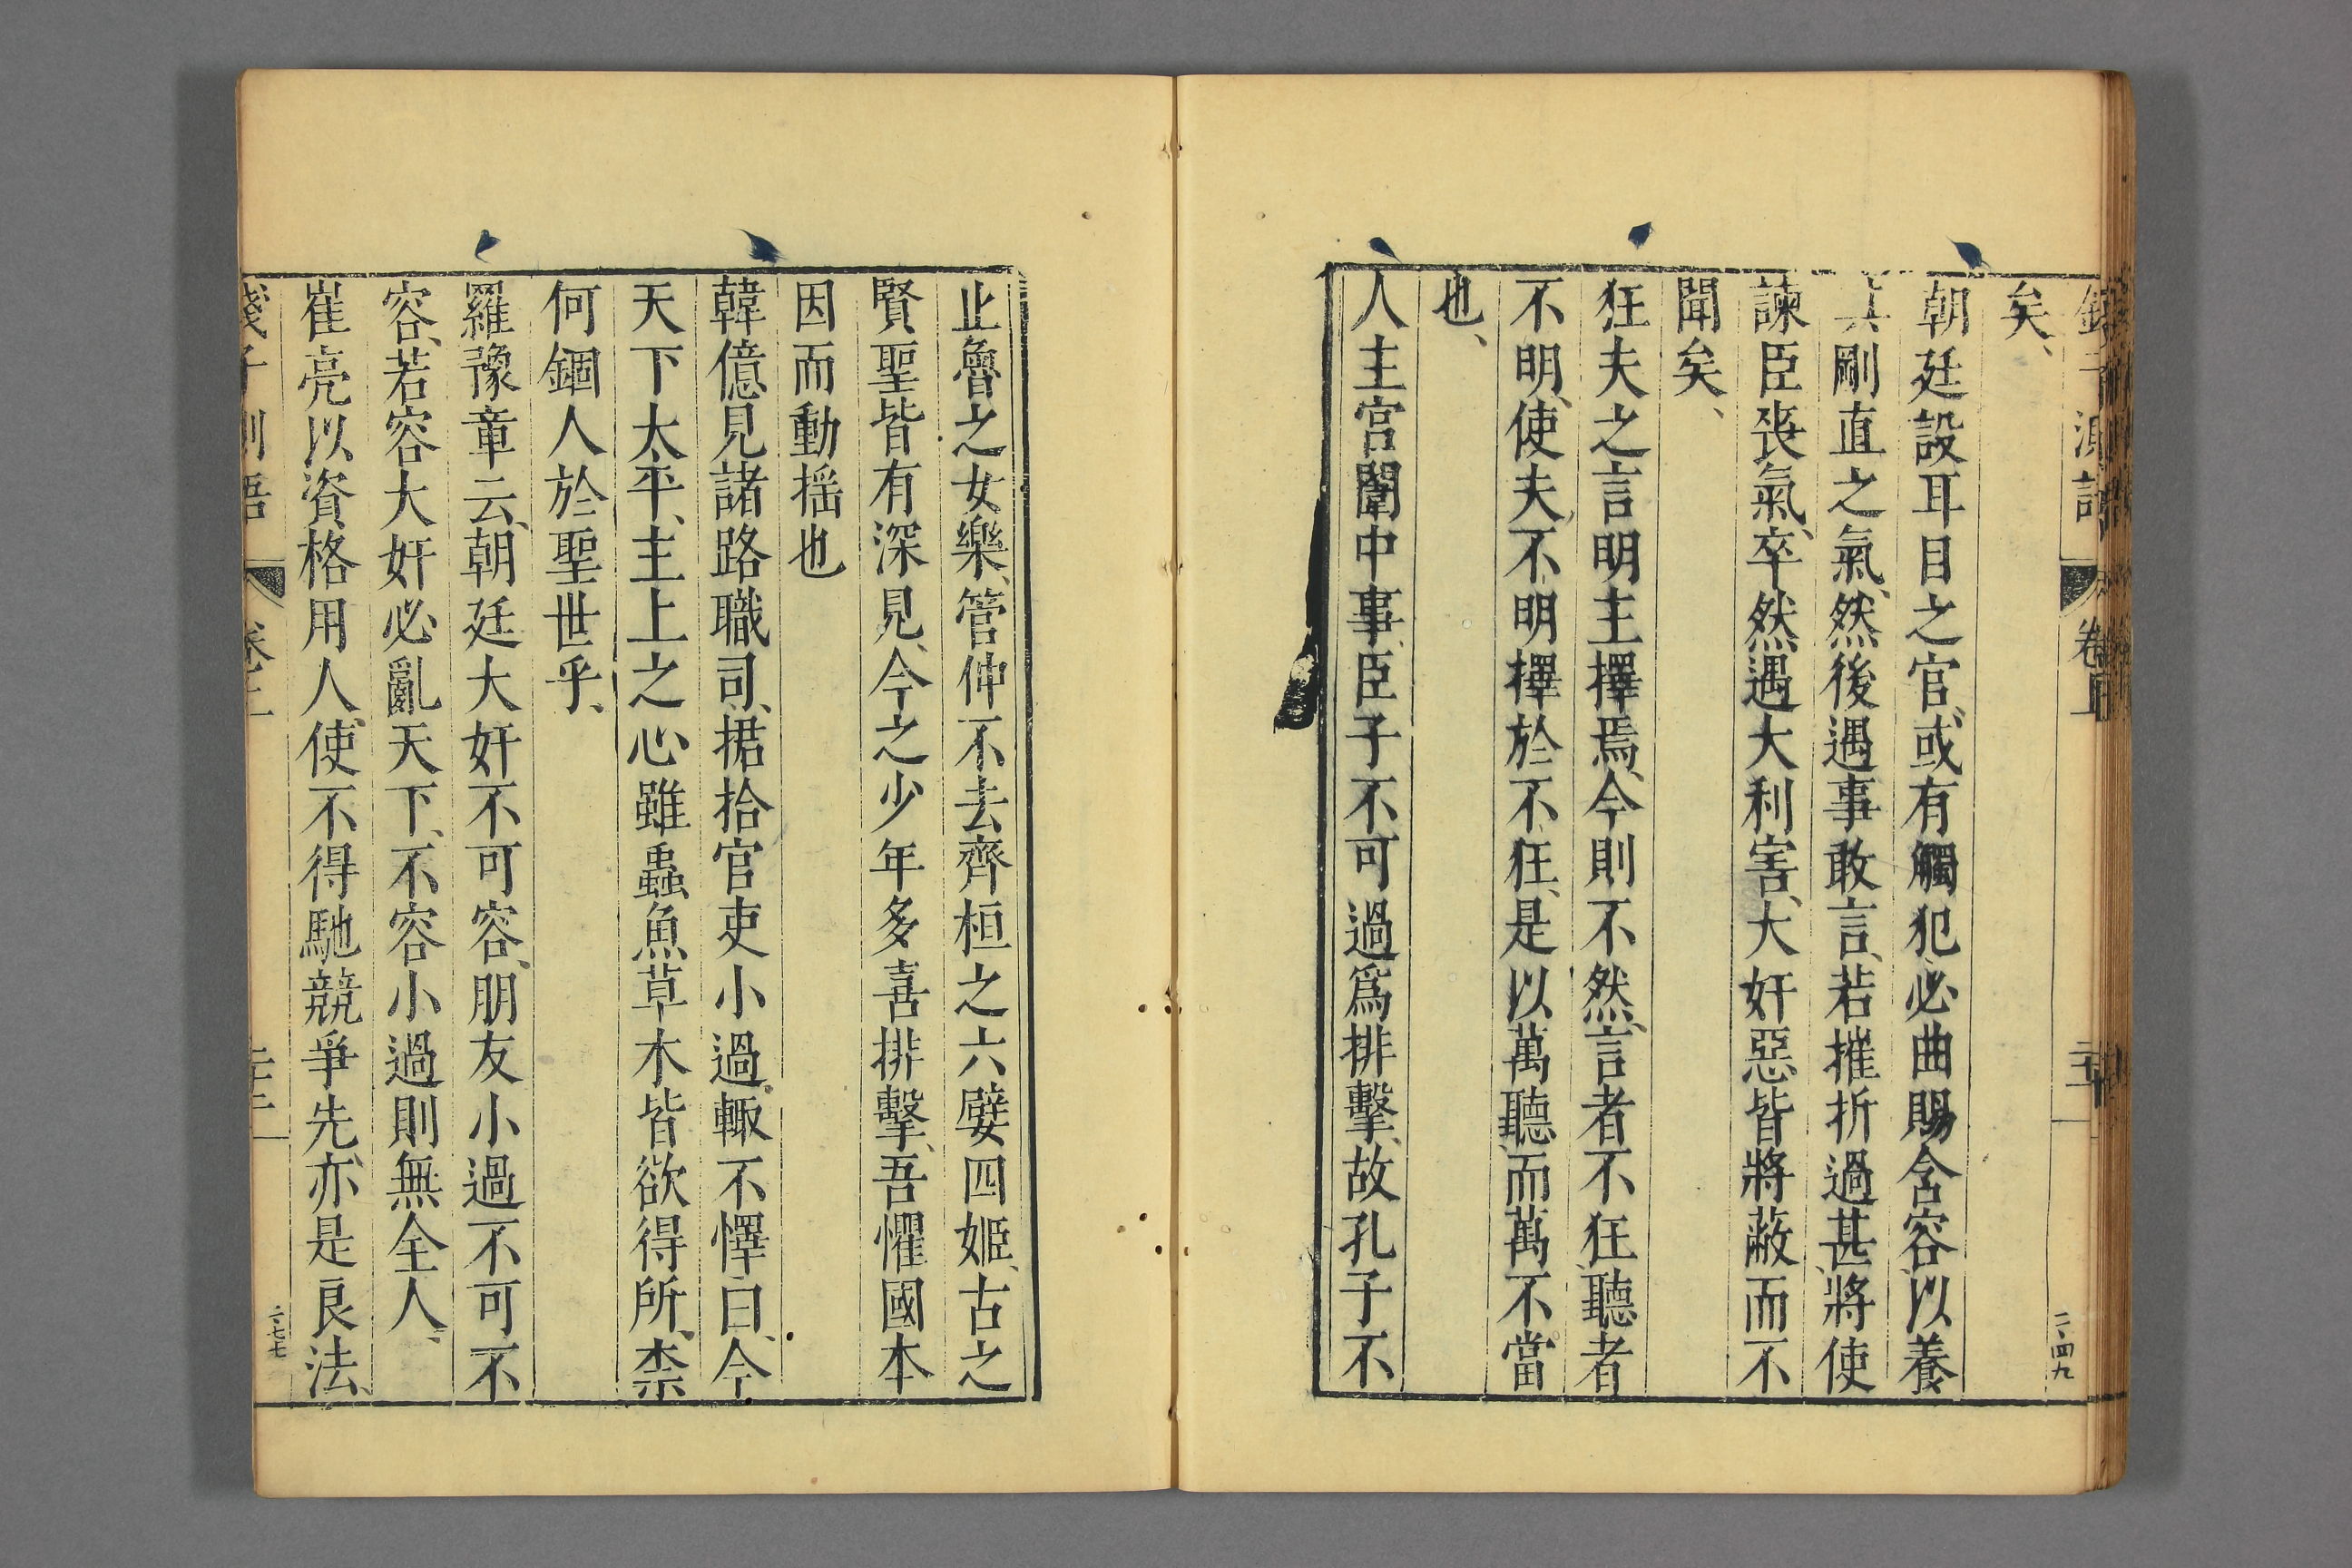 矣、
朝廷設耳目之官、或有觸犯必曲賜含容以養
其剛直之氣、然後遇事敢言、若摧折過甚、將使
諫臣喪氣、卒然遇大利害、大奸惡皆將蔽而不
聞矣、
狂夫之言明主擇焉、今則不然、言者不狂、聽者
不明、使夫不明擇於不狂、是以萬聽而萬不當
也、
人主宮闈中事、臣子不可過爲排擊、故孔子不
止魯之女樂、管仲不去齊桓之六嬖四姬、古之
賢聖皆有深見、今之少年多喜排擊、吾懼國本
因而動搖也
韓億見諸路職司、捃拾官吏小過、輙不懌曰、今
天下太平、主上之心雖蟲魚草木皆欲得所、柰
何錮人於聖世乎、
羅豫章云、朝廷大奸不可容、朋友小過不可不
容、若容大奸必亂天下、不容小過則無全人、
崔亮以資格用人、使不得馳競爭先、亦是良法、
二七七
一四九